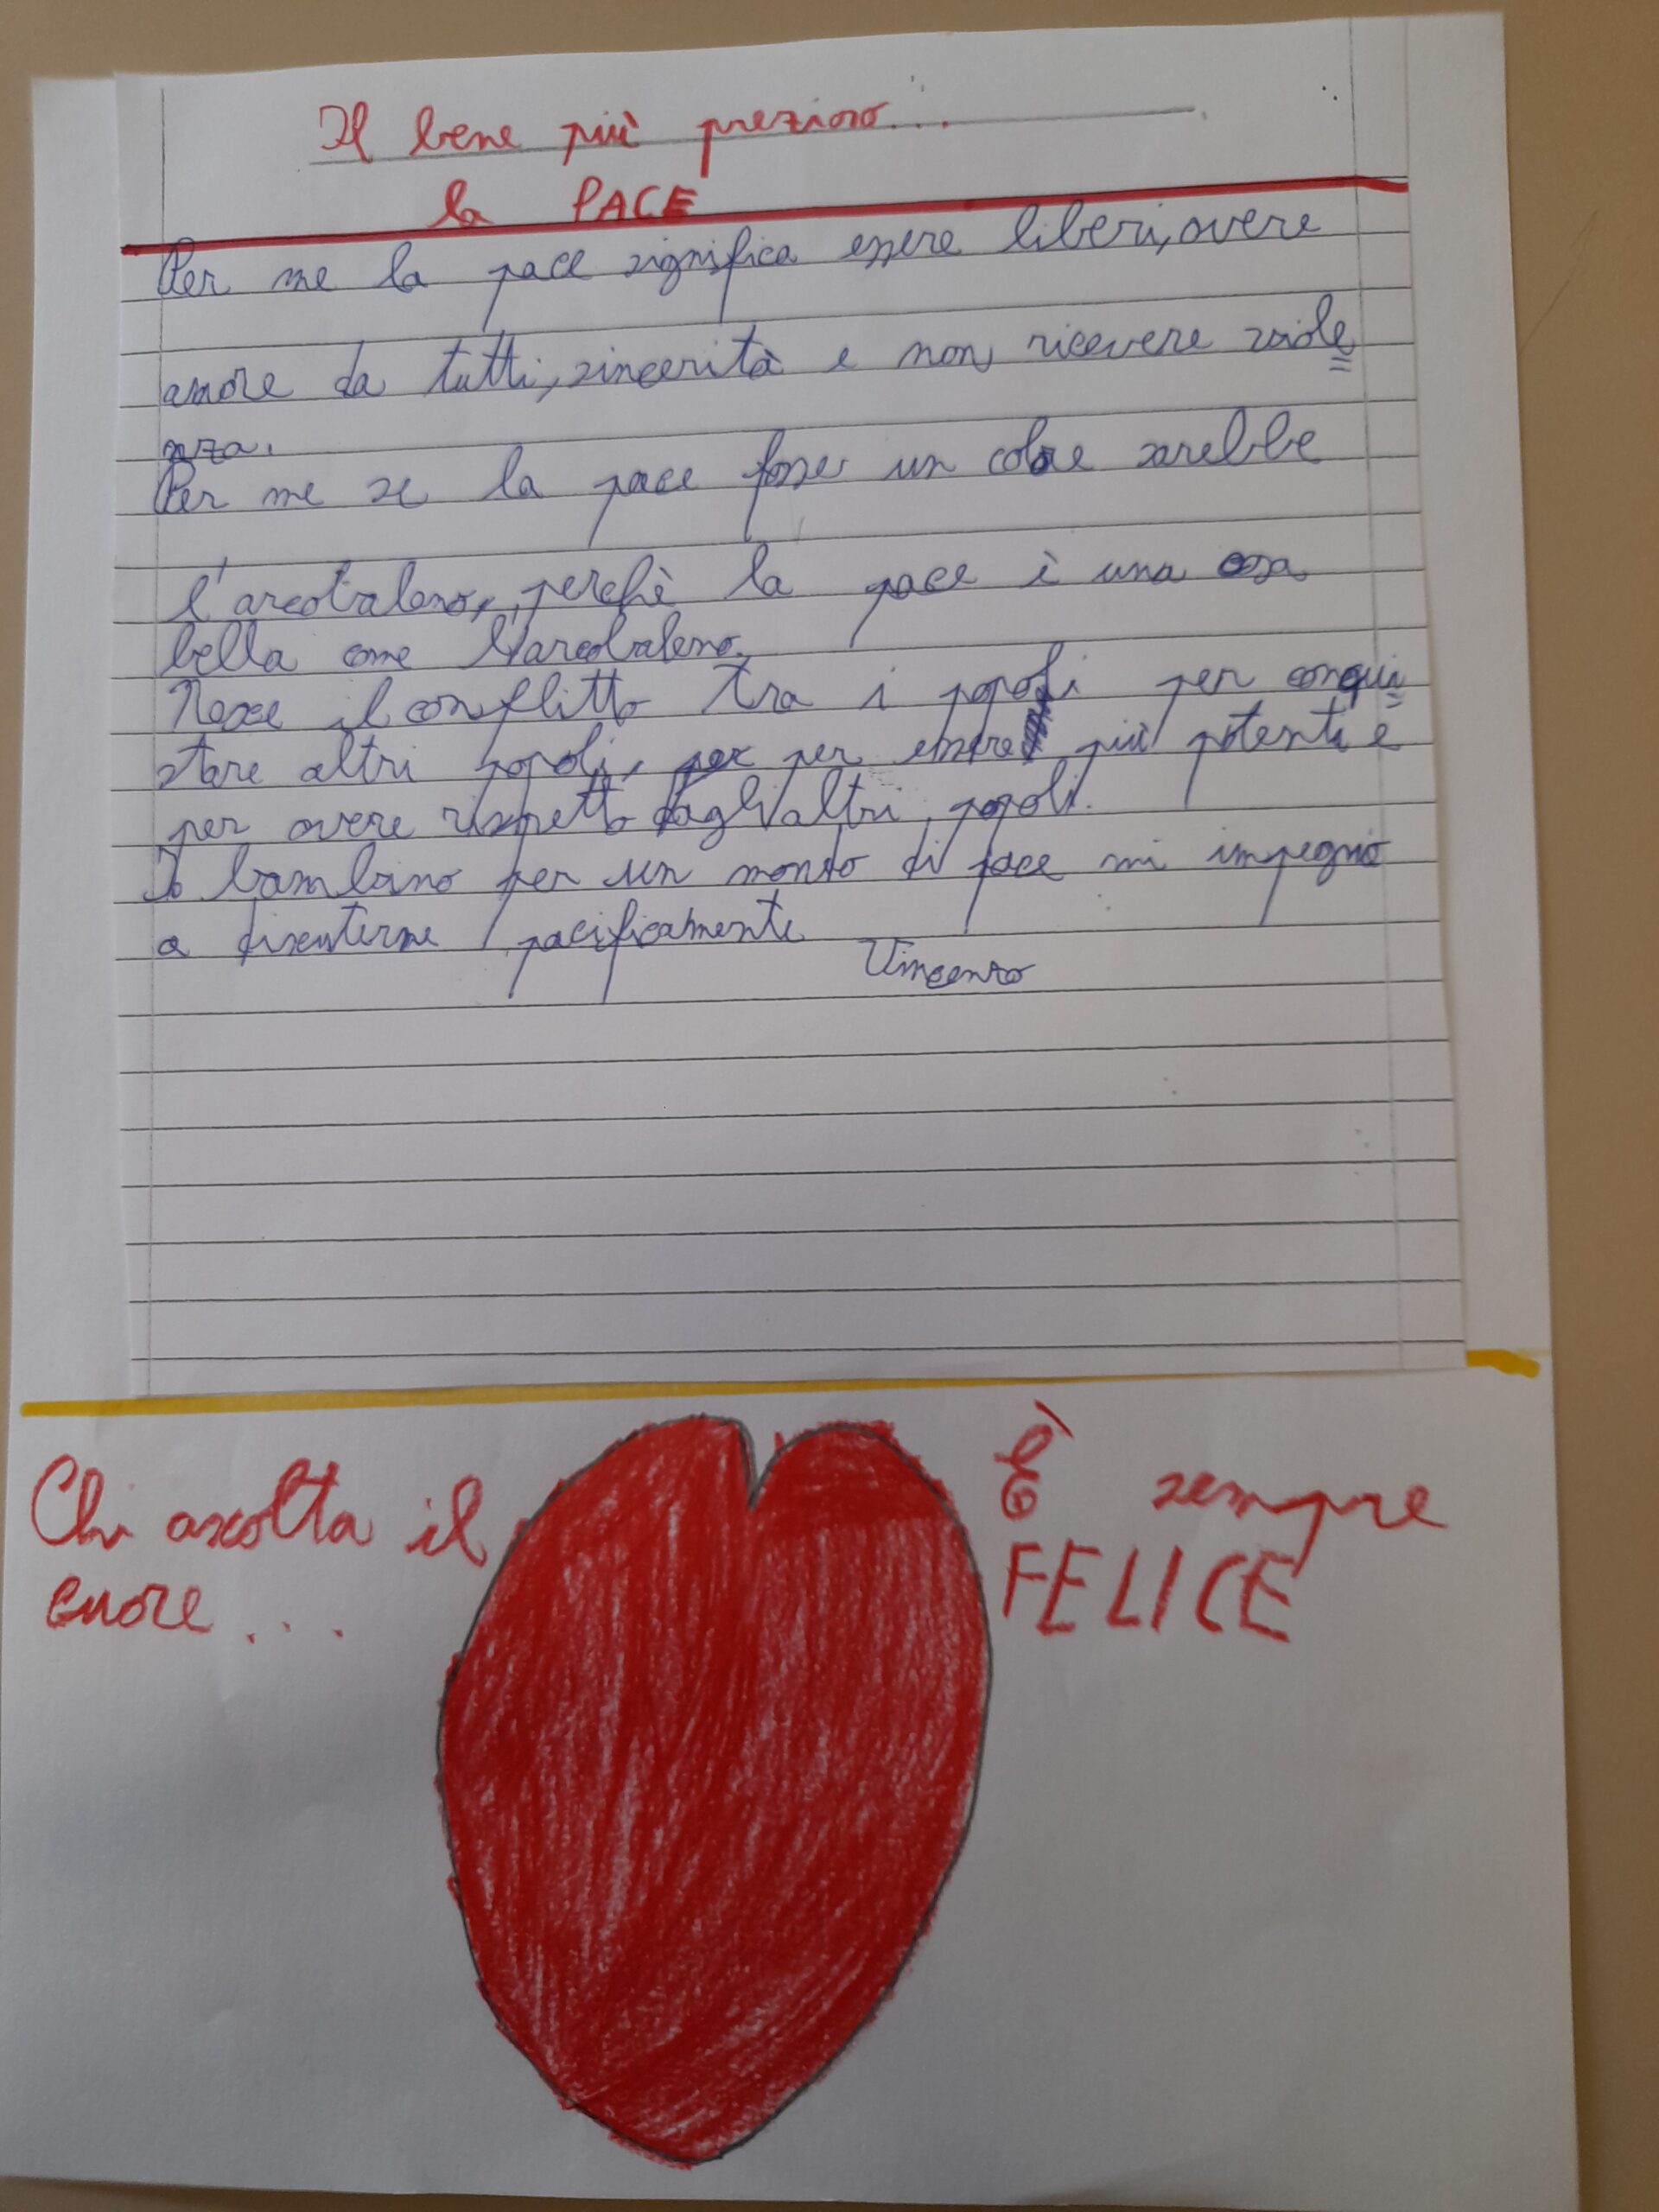 Il bene più prezioso...
la PACE
Per me la pace significa essere liberi, avere
amore da tutti, sincerità e non ricevere viole=
nza.
Per me se la pace fosse un colore sarebbe
l'arcobaleno, perchè la pace è una cosa
bella come l'arcobaleno.
Nasce il conflitto tra i popoli per conqui=
stare altri popoli, per essere più potenti e
per avere rispetto dagli altri popoli.
Io bambino per un mondo di pace mi impegno
a discuterne pacificamente
Vincenzo
Chi ascolta il
cuore...
È sempre
FELICE